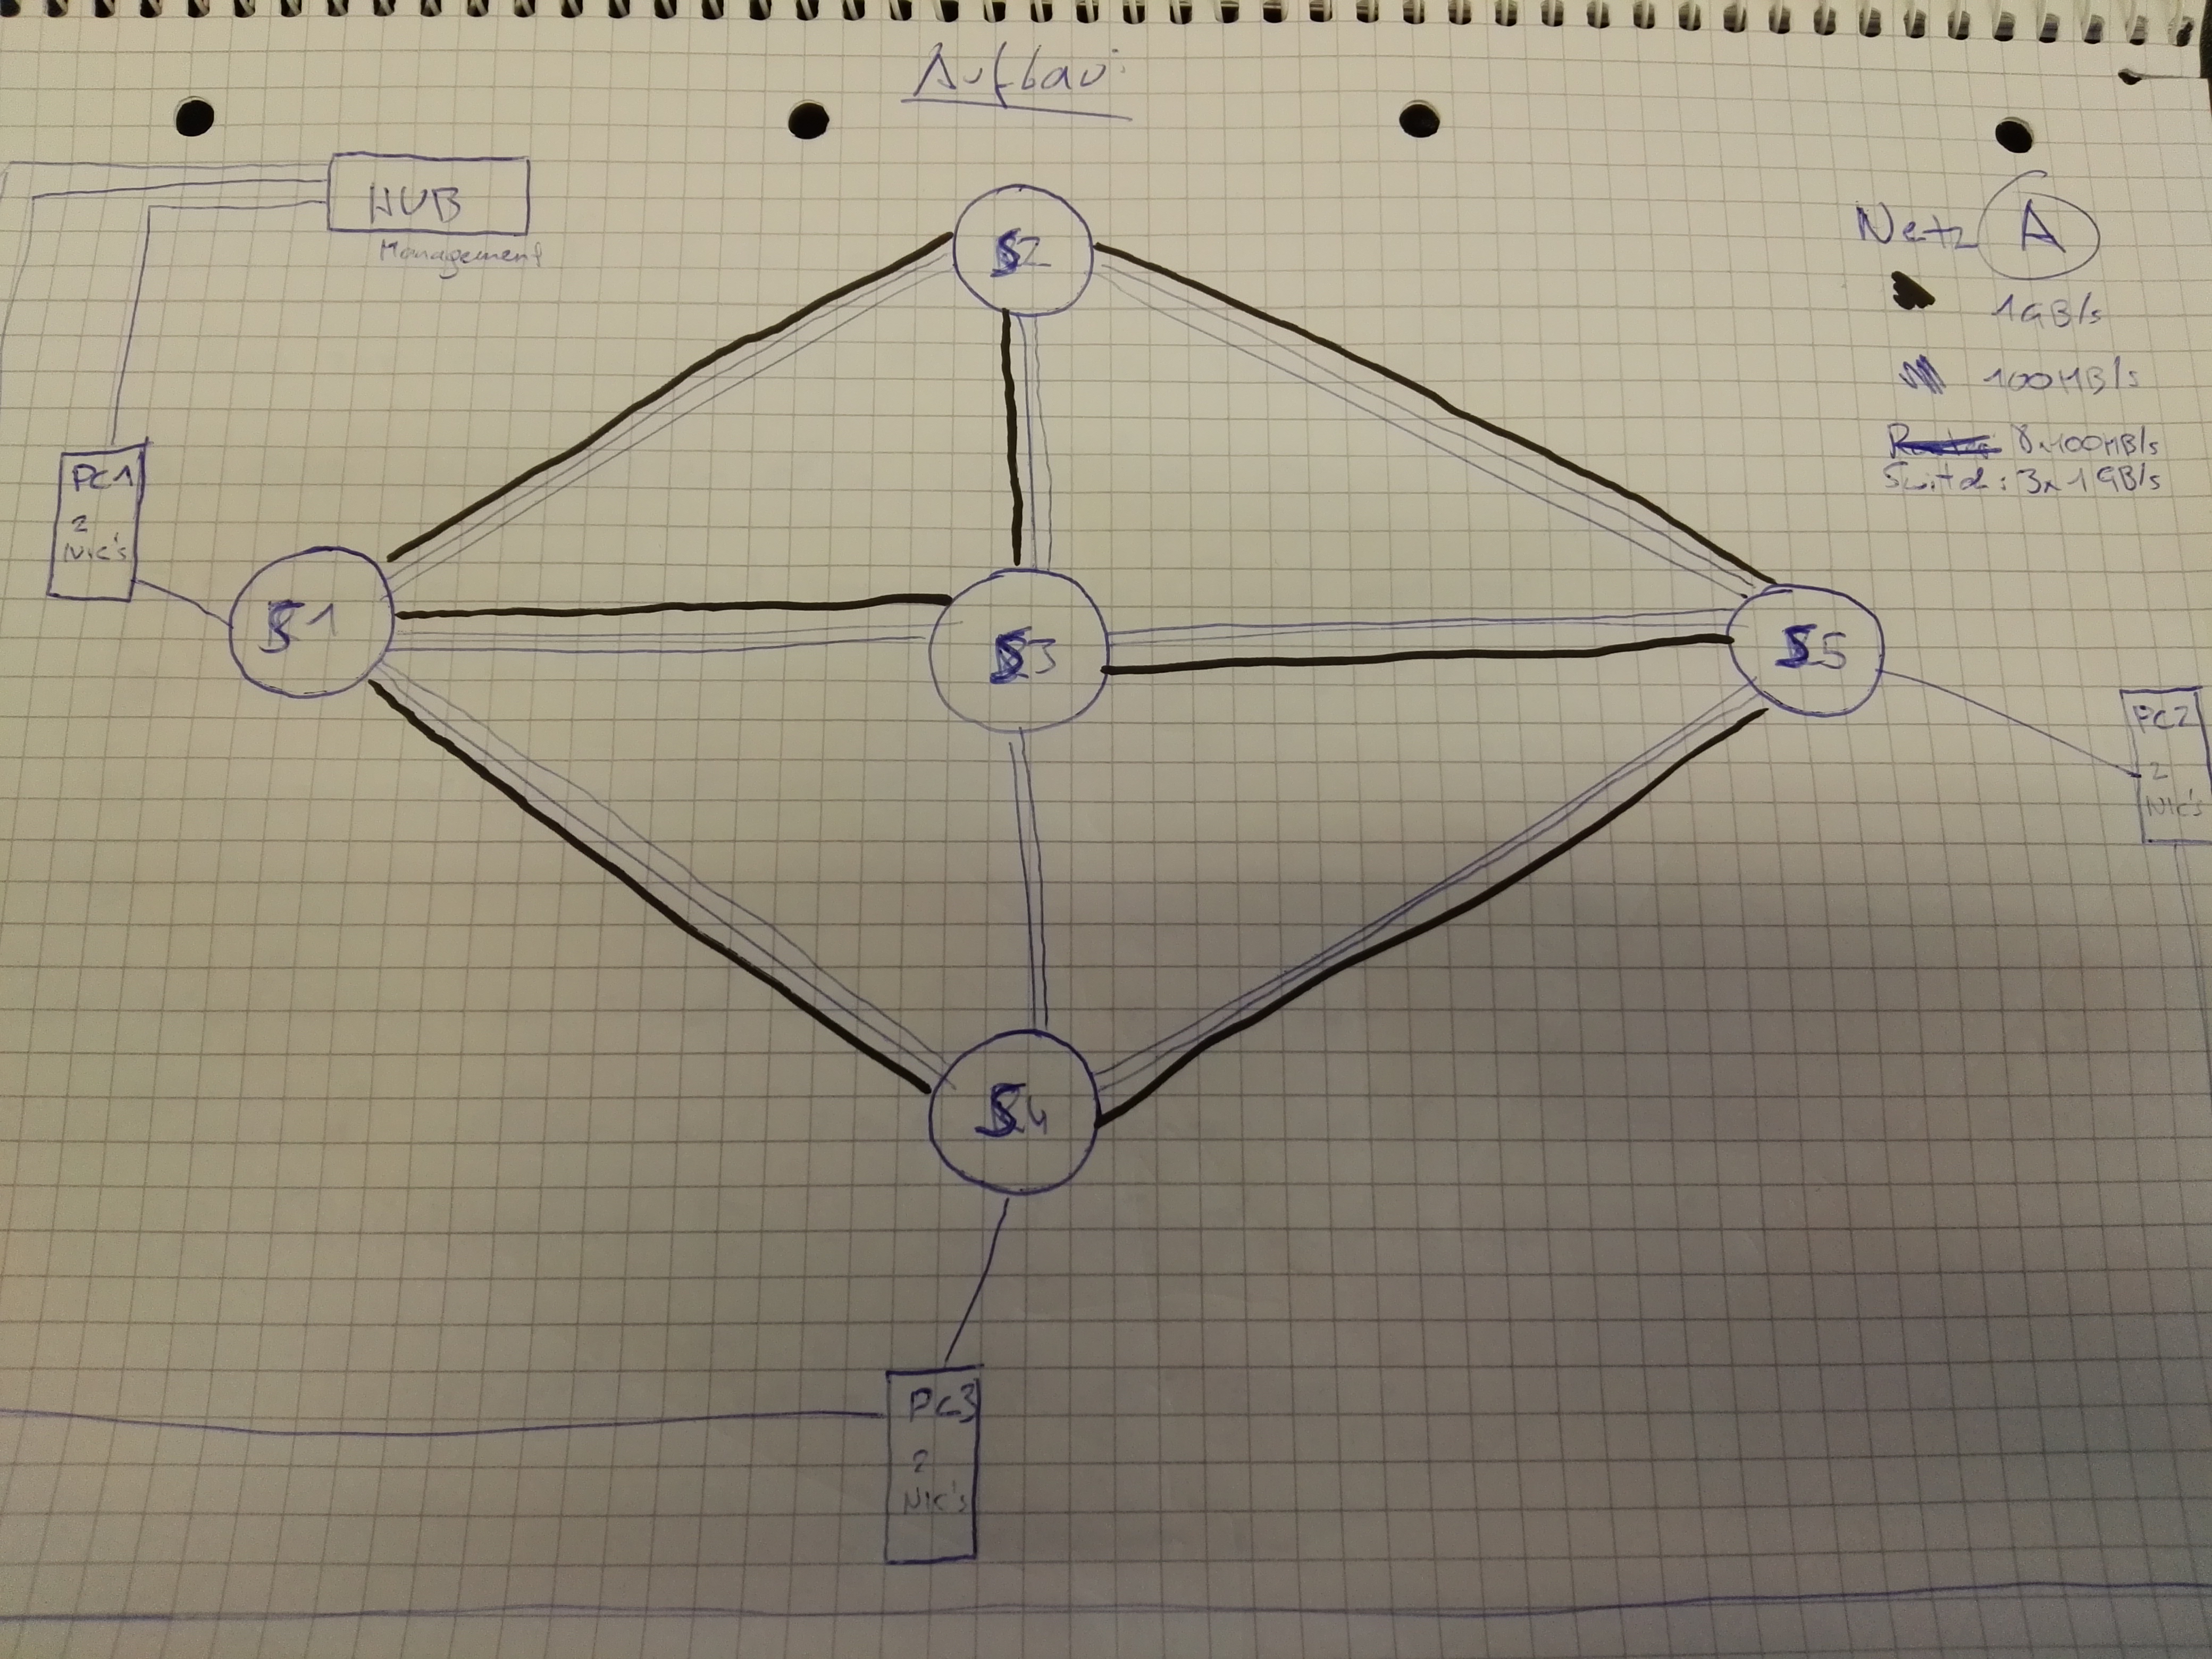 Aufbau:
HUB
Management
Netz A
1GB/s
100MB/s
8x100MB/s
Switch: 3x1GB/s
S2
PC1
2
NIC's
S1
S3
S5
PC2
2
NIC's
S4
PC3
2
NIC's